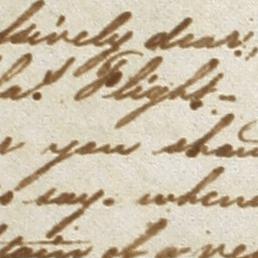 sively dear,
Flight-
you shou
say. whene
tain of a ve